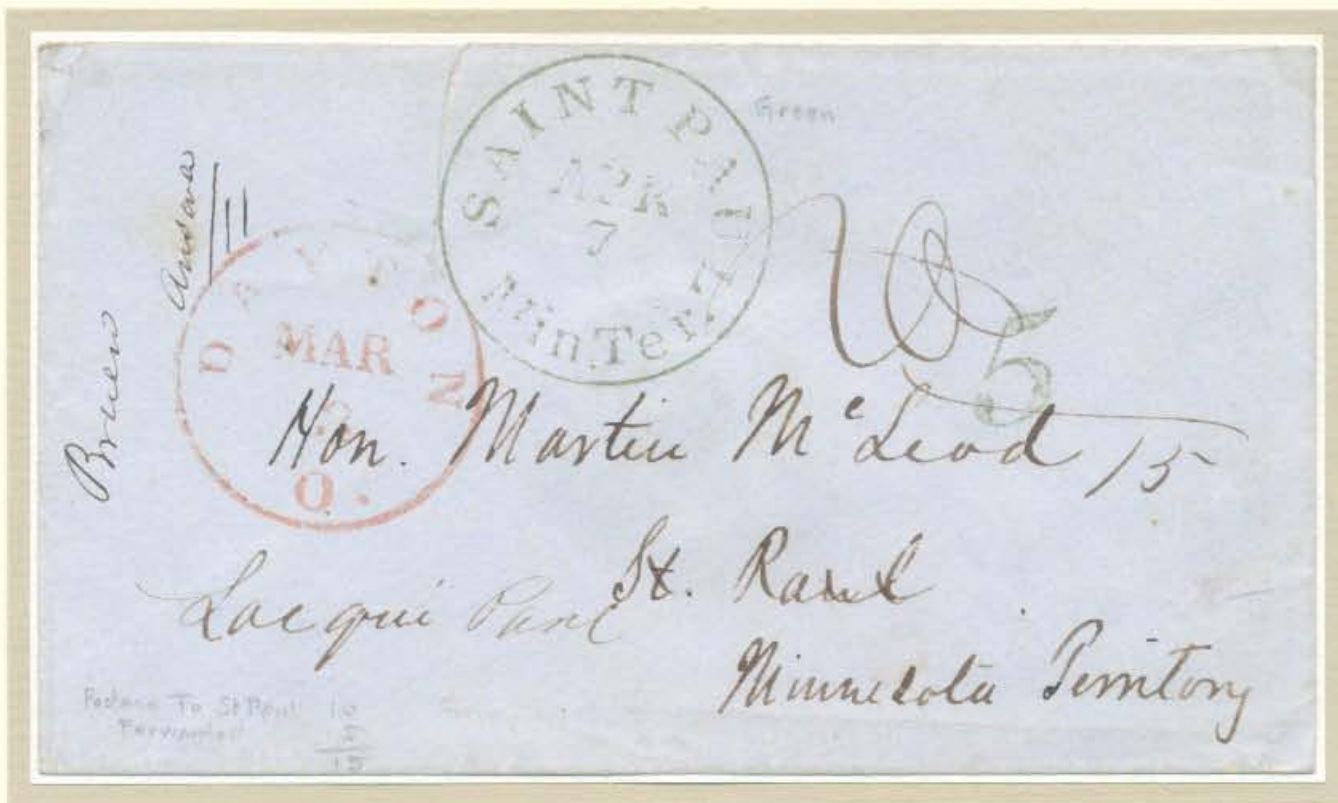 SAINT PAUL
APR
7
Min. Ter.
Green
5
DAYTON
MAR
O.
Hon. Martin McLeod 15
St. Paul
Lac qui Parle
Minnesota Territory
Postage To St Paul 10
5
15